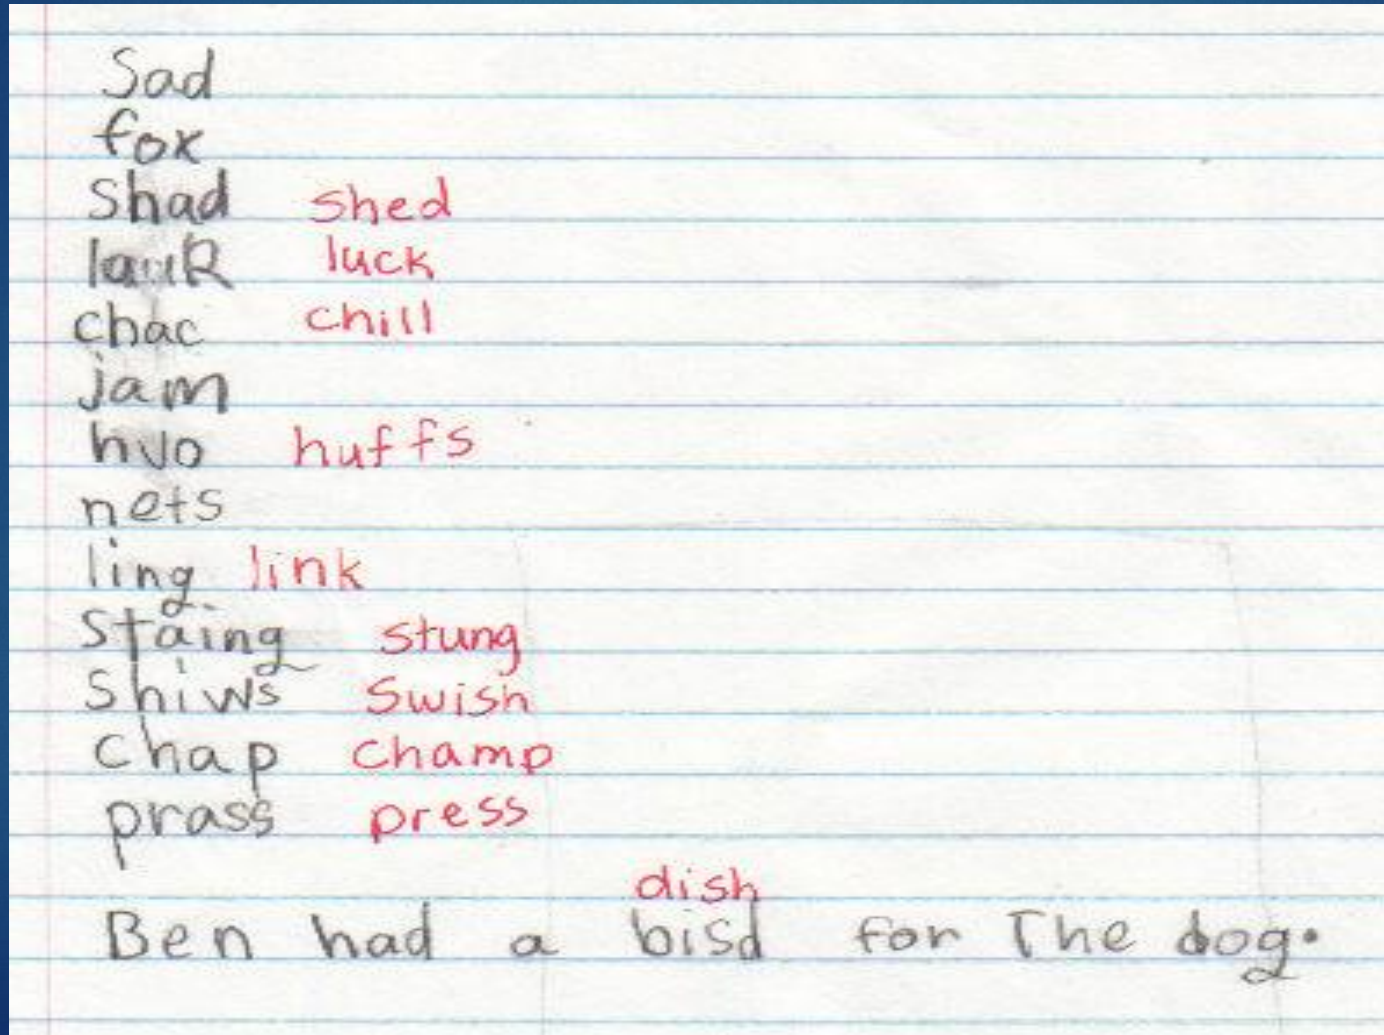 Sad
fox
Shad shed
luck
chac chill
jam
hvo huffs
nets
ling link
Staing stung
Shiws Swish
Chap champ
prass press
dish
Ben had a bisd for The dog.